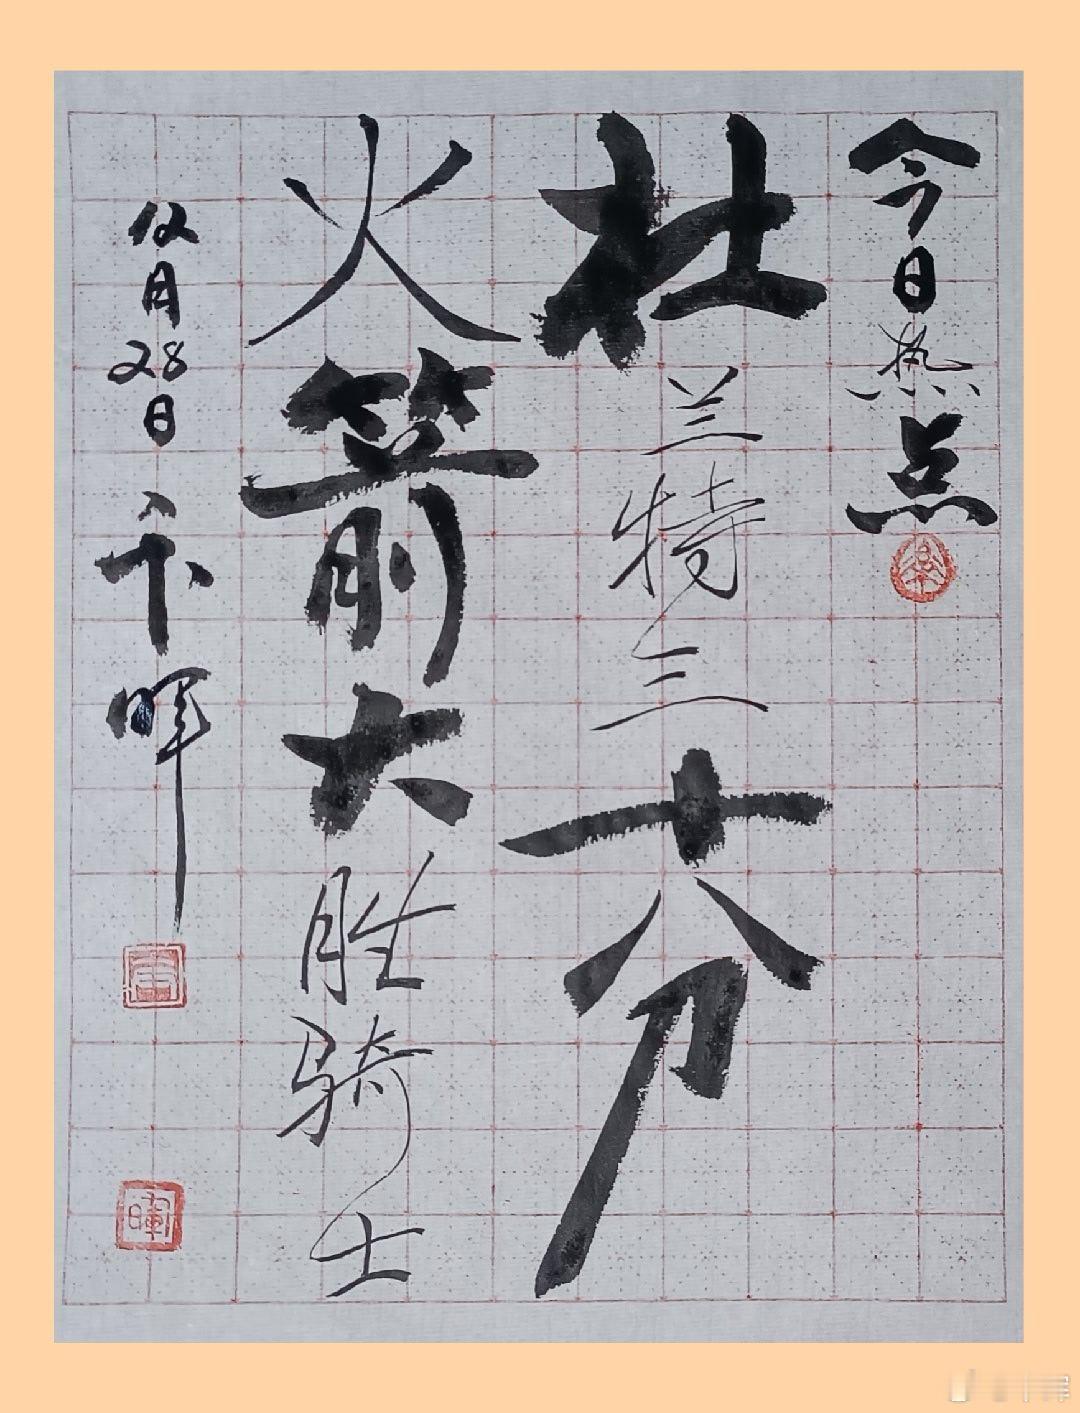 今日热点
杜兰特三十分
火箭大胜骑士
12月28日卞晖
暉